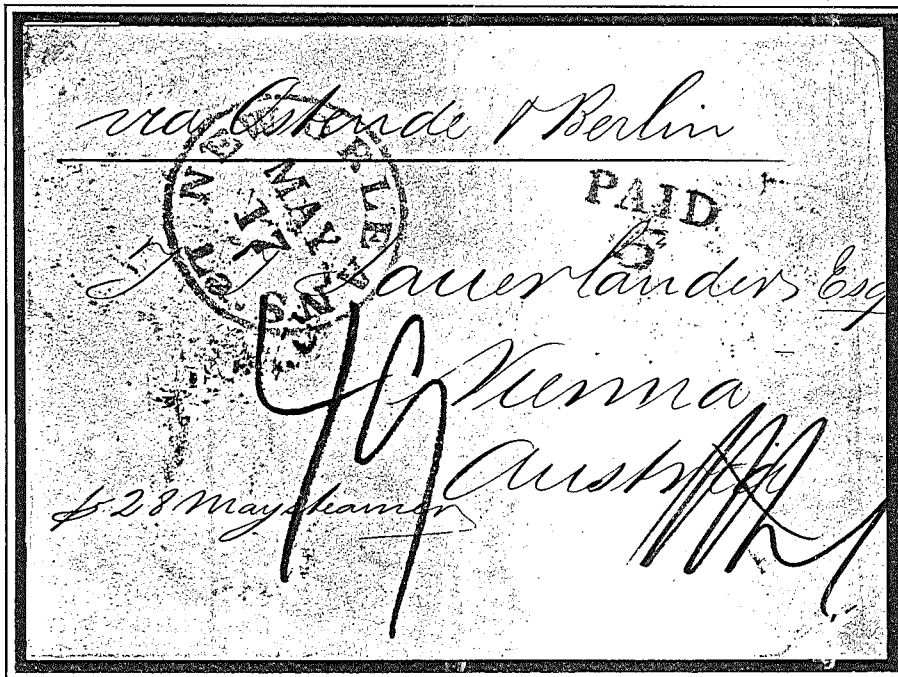 via Ostende & Berlin
NEW ORLEANS La
MAY
17
PAID
5
Sauerlanders Esq
Vienna
Austria
49
p 28 May steamer